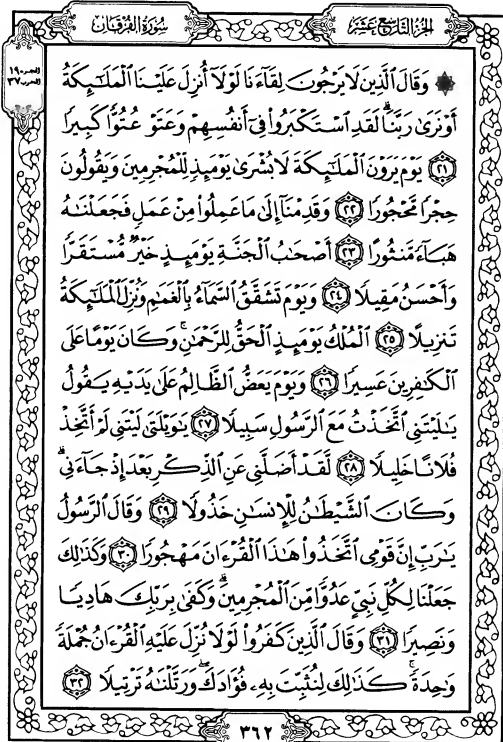 الجزء التاسع عشر
سورة الفرقان
الجزء ١٩
الحزب ٣٧
۞ وَقَالَ ٱلَّذِينَ لَا يَرْجُونَ لِقَآءَنَا لَوْلَآ أُنزِلَ عَلَيْنَا ٱلْمَلَٰٓئِكَةُ
أَوْ نَرَىٰ رَبَّنَا ۗ لَقَدِ ٱسْتَكْبَرُوا۟ فِىٓ أَنفُسِهِمْ وَعَتَوْ عُتُوًّا كَبِيرًا
٢١ يَوْمَ يَرَوْنَ ٱلْمَلَٰٓئِكَةَ لَا بُشْرَىٰ يَوْمَئِذٍ لِّلْمُجْرِمِينَ وَيَقُولُونَ
حِجْرًا مَّحْجُورًا ٢٢ وَقَدِمْنَآ إِلَىٰ مَا عَمِلُوا۟ مِنْ عَمَلٍ فَجَعَلْنَٰهُ
هَبَآءً مَّنثُورًا ٢٣ أَصْحَٰبُ ٱلْجَنَّةِ يَوْمَئِذٍ خَيْرٌ مُّسْتَقَرًّا
وَأَحْسَنُ مَقِيلًا ٢٤ وَيَوْمَ تَشَقَّقُ ٱلسَّمَآءُ بِٱلْغَمَٰمِ وَنُزِّلَ ٱلْمَلَٰٓئِكَةُ
تَنزِيلًا ٢٥ ٱلْمُلْكُ يَوْمَئِذٍ ٱلْحَقُّ لِلرَّحْمَٰنِ ۚ وَكَانَ يَوْمًا عَلَى
ٱلْكَٰفِرِينَ عَسِيرًا ٢٦ وَيَوْمَ يَعَضُّ ٱلظَّالِمُ عَلَىٰ يَدَيْهِ يَقُولُ
يَٰلَيْتَنِى ٱتَّخَذْتُ مَعَ ٱلرَّسُولِ سَبِيلًا ٢٧ يَٰوَيْلَتَىٰ لَيْتَنِى لَمْ أَتَّخِذْ
فُلَانًا خَلِيلًا ٢٨ لَّقَدْ أَضَلَّنِى عَنِ ٱلذِّكْرِ بَعْدَ إِذْ جَآءَنِى ۗ
وَكَانَ ٱلشَّيْطَٰنُ لِلْإِنسَٰنِ خَذُولًا ٢٩ وَقَالَ ٱلرَّسُولُ
يَٰرَبِّ إِنَّ قَوْمِى ٱتَّخَذُوا۟ هَٰذَا ٱلْقُرْءَانَ مَهْجُورًا ٣٠ وَكَذَٰلِكَ
جَعَلْنَا لِكُلِّ نَبِىٍّ عَدُوًّا مِّنَ ٱلْمُجْرِمِينَ ۗ وَكَفَىٰ بِرَبِّكَ هَادِيًا
وَنَصِيرًا ٣١ وَقَالَ ٱلَّذِينَ كَفَرُوا۟ لَوْلَا نُزِّلَ عَلَيْهِ ٱلْقُرْءَانُ جُمْلَةً
وَٰحِدَةً ۚ كَذَٰلِكَ لِنُثَبِّتَ بِهِۦ فُؤَادَكَ ۖ وَرَتَّلْنَٰهُ تَرْتِيلًا ٣٢
٣٦٢